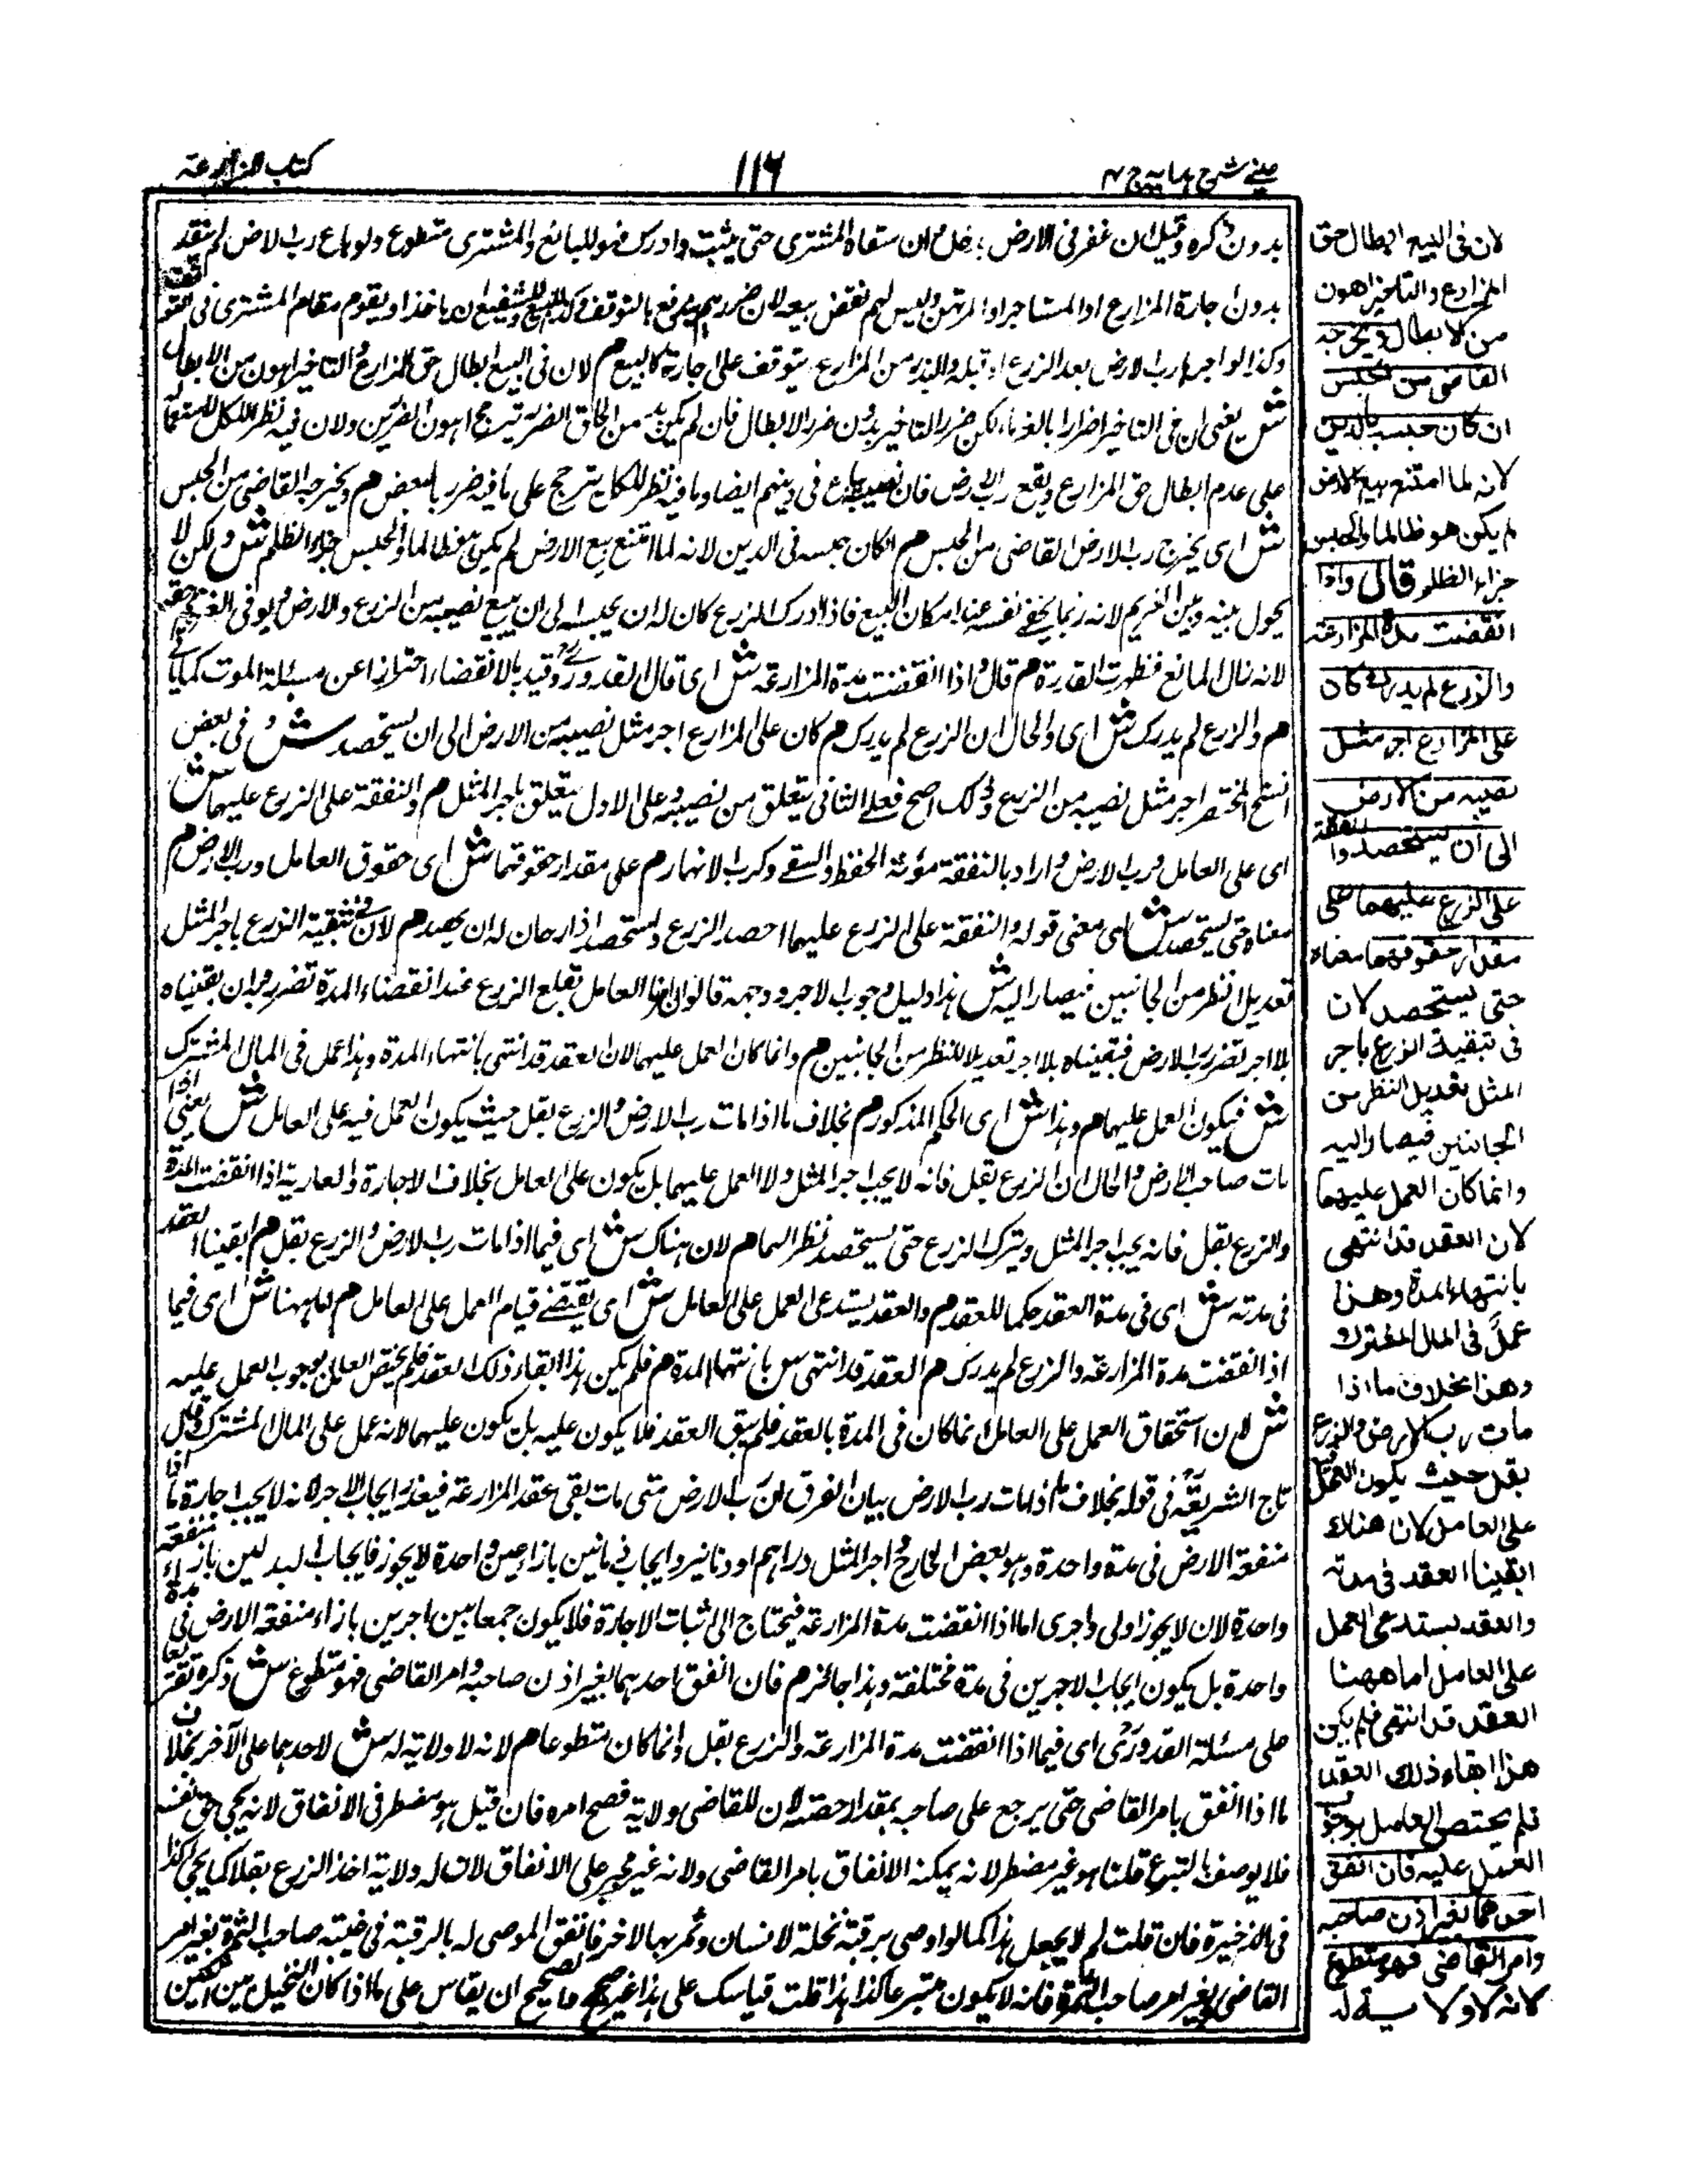 عينى شرح هدايه ج ٤
١١٦
كتاب المزارعة
بدون ذكره وقيل ان عفر فى الارض ان سقاه المشترى حتى يثبت وادرك فهو للبائع والمشترى متطوع ولو باع رب الارض لم ينفذ
بدون اجازة المزارع او المستاجر او المرتهن وليس لهم نقض بيعه لان ضررهم يدفع بالتوقف وللشفيع ان ياخذ او يقوم مقام المشترى فى
وكذا لو اجرها رب الارض بعد الزرع او قبله والبذر من المزارع يتوقف على اجازة كالبيع م لان فى البيع ابطال حق المزارع والتاخير اهون من الابطال
ش يعنى ان فى التاخير اضرارا بالغرماء لكن ضرر التاخير بدون ضرر الابطال فان لم يكن بد من الحاق الضرر يترجح اهون الضررين ولان فيه نظر للكل
على عدم ابطال حق المزارع ونفع رب الارض فان نصيبه يباع فى دينهم ايضا وما فيه نظر للكل يترجح على ما فيه ضرر بالبعض م ويخرجه القاضى من الحبس
ش اى يخرج رب الارض القاضى من الحبس م ان كان حبسه فى الدين لانه لما امتنع بيع الارض لم يكن هو ظالما والحبس جزاء الظلم ش ولكن لا
يحول بينه وبين الغريم لانه ربما يخفى نفسه عند امكان البيع فاذا ادرك الزرع كان له ان يحبسه الى ان يبيع نصيبه من الزرع والارض ويوفى الغريم حقه
لانه زال المانع فظهرت القدرة م قال واذا انقضت مدة المزارعة ش اى قال القدورى وقيد بالانقضاء احترازا عن مسئلة الموت كما ياتى
م والزرع لم يدرك ش اى والحال ان الزرع لم يدرك م كان على المزارع اجر مثل نصيبه من الارض الى ان يستحصد ش و فى بعض
نسخ المختصر اجر مثل نصيبه من الزرع وذلك اصح فعلى الثانى يتعلق من نصيبه وعلى الاول يتعلق باجر المثل م والنفقة على الزرع عليهما ش
اى على العامل ورب الارض واراد بالنفقة مؤنة الحفظ والسقى وكرب الانهار م على مقدار حقوقهما ش اى حقوق العامل ورب الارض م
معناه حتى يستحصد ش اى معنى قوله والنفقة على الزرع عليهما احصد الزرع واستحصد اذا حان له ان يحصد م لان فى تبقية الزرع باجر المثل
تعديل النظر من الجانبين فيصار اليه ش هذا دليل وجوب الاجر ووجهه قالوا ان امرنا العامل بقلع الزرع عند انقضاء المدة تضرر وان بقيناه
بلا اجر تضرر رب الارض فبقيناه بالاجر تعديلا للنظر من الجانبين م وانما كان العمل عليهما لان العقد قد انتهى بانتهاء المدة وهذا عمل فى المال المشترك
ش فيكون العمل عليهما م وهذا ش اى الحكم المذكور م بخلاف ما اذا مات رب الارض والزرع بقل حيث يكون العمل فيه على العامل ش يعنى اذا
مات صاحب الارض والحال ان الزرع بقل فانه لا يجب اجر المثل ولا العمل عليهما بل يكون على العامل بخلاف الاجارة والعارية اذا انقضت المدة
والزرع بقل فانه يجب اجر المثل ويترك الزرع حتى يستحصد نظرا لهما م لان هناك ش اى فيما اذا مات رب الارض والزرع بقل م ابقينا العقد
فى مدته ش اى فى مدة العقد حكما للعقد م والعقد يستدعى العمل على العامل ش اى يقتضى قيام العمل على العامل م اما ههنا ش اى فيما
اذا انقضت مدة المزارعة والزرع لم يدرك م العقد قد انتهى ش بانتهاء المدة م فلم يكن هذا ابقاء ذلك العقد فلم يختص العامل بوجوب العمل عليه
ش لان استحقاق العمل على العامل انما كان فى المدة بالعقد فلم يبق العقد فلا يكون عليه بل يكون عليهما لانه عمل على المال المشترك قال
تاج الشريعة فى قوله بخلاف ما اذا مات رب الارض بيان الفرق ان رب الارض متى مات بقى عقد المزارعة فيعذر ايجاب الاجر لانه لا يجب اجارة ما اذا
منفعة الارض فى مدة واحدة وهو بعض الخارج واجر المثل دراهم او دنانير وايجاب مائتين بازاء عين واحدة لا يجوز فايجاب البدلين بازاء منفعة
واحدة لان لا يجوز اولى واحرى اما اذا انقضت مدة المزارعة فيحتاج الى اثبات الاجارة فلا يكون جمعا بين اجرين بازاء منفعة الارض فى مدة
واحدة بل يكون ايجاب الاجرين فى مدة مختلفة وهذا جائز م فان انفق احدهما بغير اذن صاحبه وامر القاضى فهو متطوع ش ذكره تفريعا
على مسئلة القدورى اى فيما اذا انقضت مدة المزارعة والزرع بقل وانما كان متطوعا م لانه لا ولاية له ش لاحدهما على الآخر بخلاف
ما اذا انفق بامر القاضى حتى يرجع على صاحبه بمقدار حصته لان للقاضى ولاية فصح امره فان قيل هو مضطر فى الانفاق لانه يحيى حق نفسه
فلا يوصف بالتبرع قلنا هو غير مضطر لانه يمكنه الانفاق بامر القاضى ولانه غير مجبر على الانفاق لان له ولاية اخذ الزرع بقلا كما يجئ كذا
فى الذخيرة فان قلت لم لا يجعل هذا كما لو اوصى برقبة نخلة لانسان وثمرها لاخر فانفق الموصى له بالرقبة فى غيبة صاحب الثمرة بغير امر
القاضى وبغير امر صاحب الثمرة فانه لا يكون متبرعا كذا هذا قلت قياسك على هذا غير صحيح والصحيح ان يقاس على ما اذا كان النخيل بين اثنين
لان فى البيع ابطال حق
المزارع والتاخير اهون
من الابطال ويخرجه
القاضى من الحبس
ان كان حبسه بالدين
لانه لما امتنع بيع الارض
لم يكن هو ظالما والحبس
جزاء الظلم قال واذا
انقضت مدة المزارعة
والزرع لم يدرك كان
على المزارع اجر مثل
نصيبه من الارض
الى ان يستحصد والنفقة
على الزرع عليهما على
مقدار حقوقهما معناه
حتى يستحصد لان
فى تبقية الزرع باجر
المثل تعديل النظر من
الجانبين فيصار اليه
وانما كان العمل عليهما
لان العقد قد انتهى
بانتهاء المدة وهذا
عمل فى المال المشترك
وهذا بخلاف ما اذا
مات رب الارض والزرع
بقل حيث يكون العمل فيه
على العامل لان هناك
ابقينا العقد فى مدته
والعقد يستدعى العمل
على العامل اما ههنا
العقد قد انتهى فلم يكن
هذا ابقاء ذلك العقد
فلم يختص العامل بوجوب
العمل عليه فان انفق
احدهما بغير اذن صاحبه
وامر القاضى فهو متطوع
لانه لا ولاية له